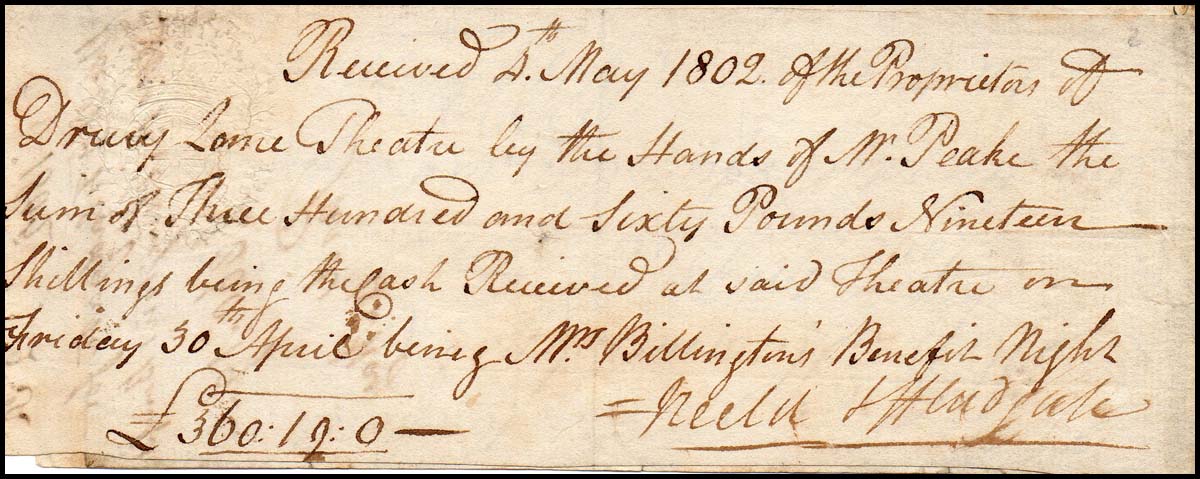 Received 4th May 1802. of the Proprietors of
Drury Lane Theatre by the Hands of Mr. Peake the
Sum of Three Hundred and Sixty Pounds Nineteen
Shillings being the Cash Received at said Theatre on
Friday 30th April being Mrs Billington's Benefit Night
£360:19:0
Neeld